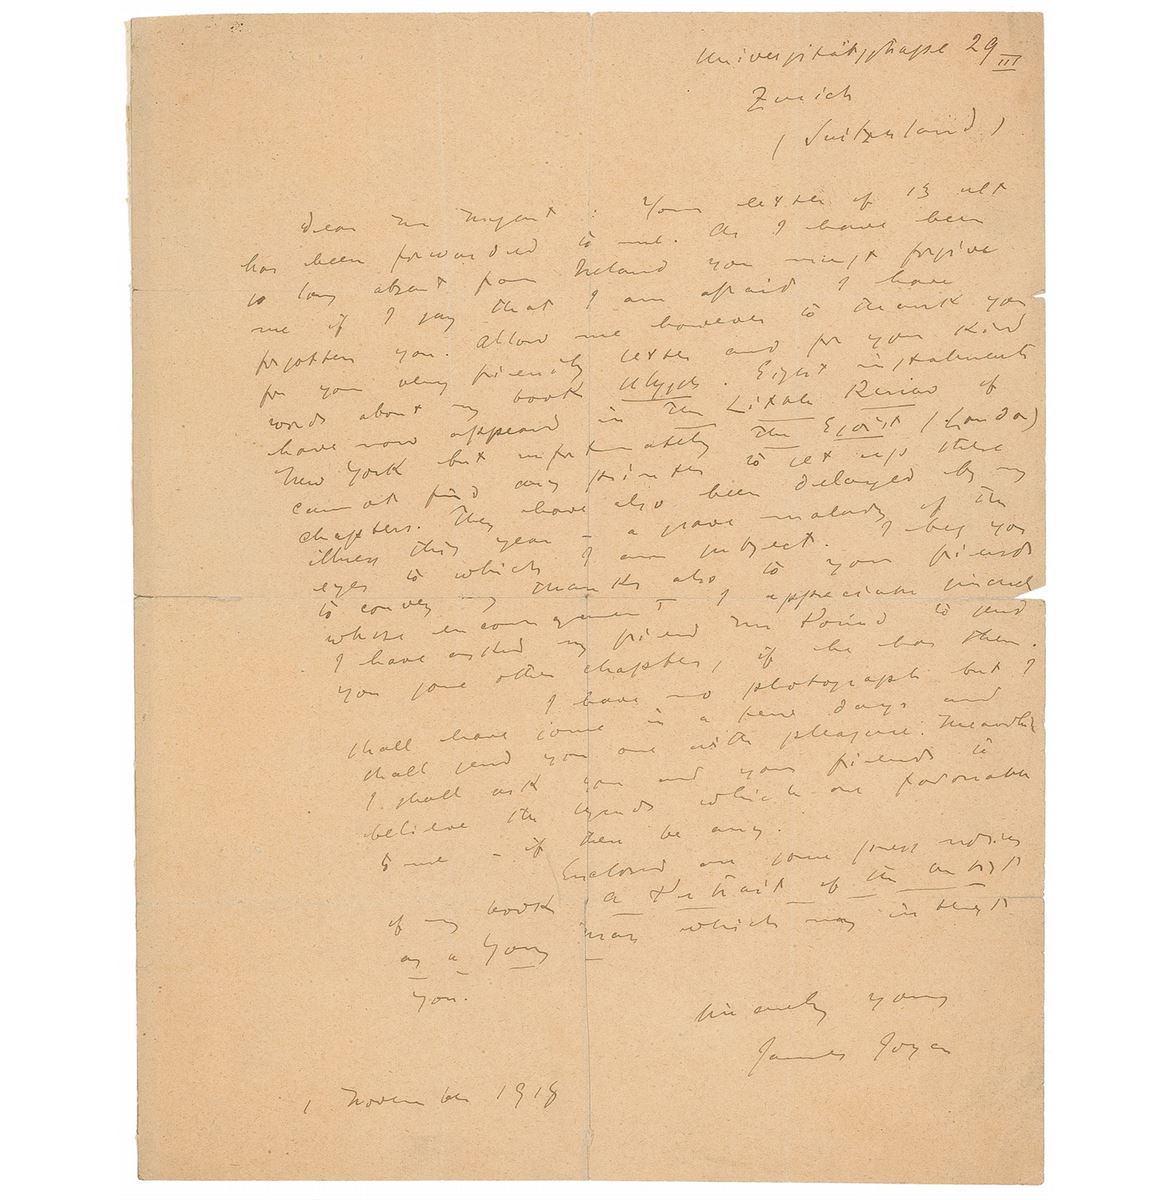 Universitätstrasse 29 III
Zurich
(Switzerland)
Dear Mr : Your letter of 13 ult
has been forwarded to me. As I have been
so long absent from Ireland you must forgive
me if I say that I am afraid I have
forgotten you. Allow me however to thank you
for your very friendly letter and for your kind
words about my book Ulysses. Eight instalments
have now appeared in The Little Review of
New York but unfortunately The Egoist (London)
cannot find any printer to set up these
chapters. They have also been delayed by my
illness this year – a grave malady of the
eyes to which I am subject. I beg you
to convey my thanks also to your friends
whose encouragement I appreciate sincerely
I have asked my friend Mr Pound to send
you some other chapters, if he has them.
I have no photograph but I
shall have some in a few days and
shall send you one with pleasure. Meanwhile
I shall ask you and your friends to
believe the legends which are favorable
to me – if there be any.
Enclosed are some press notices
of my book A Portrait of the Artist
as a Young Man which may interest
you.
Sincerely yours
James Joyce
1 November 1918